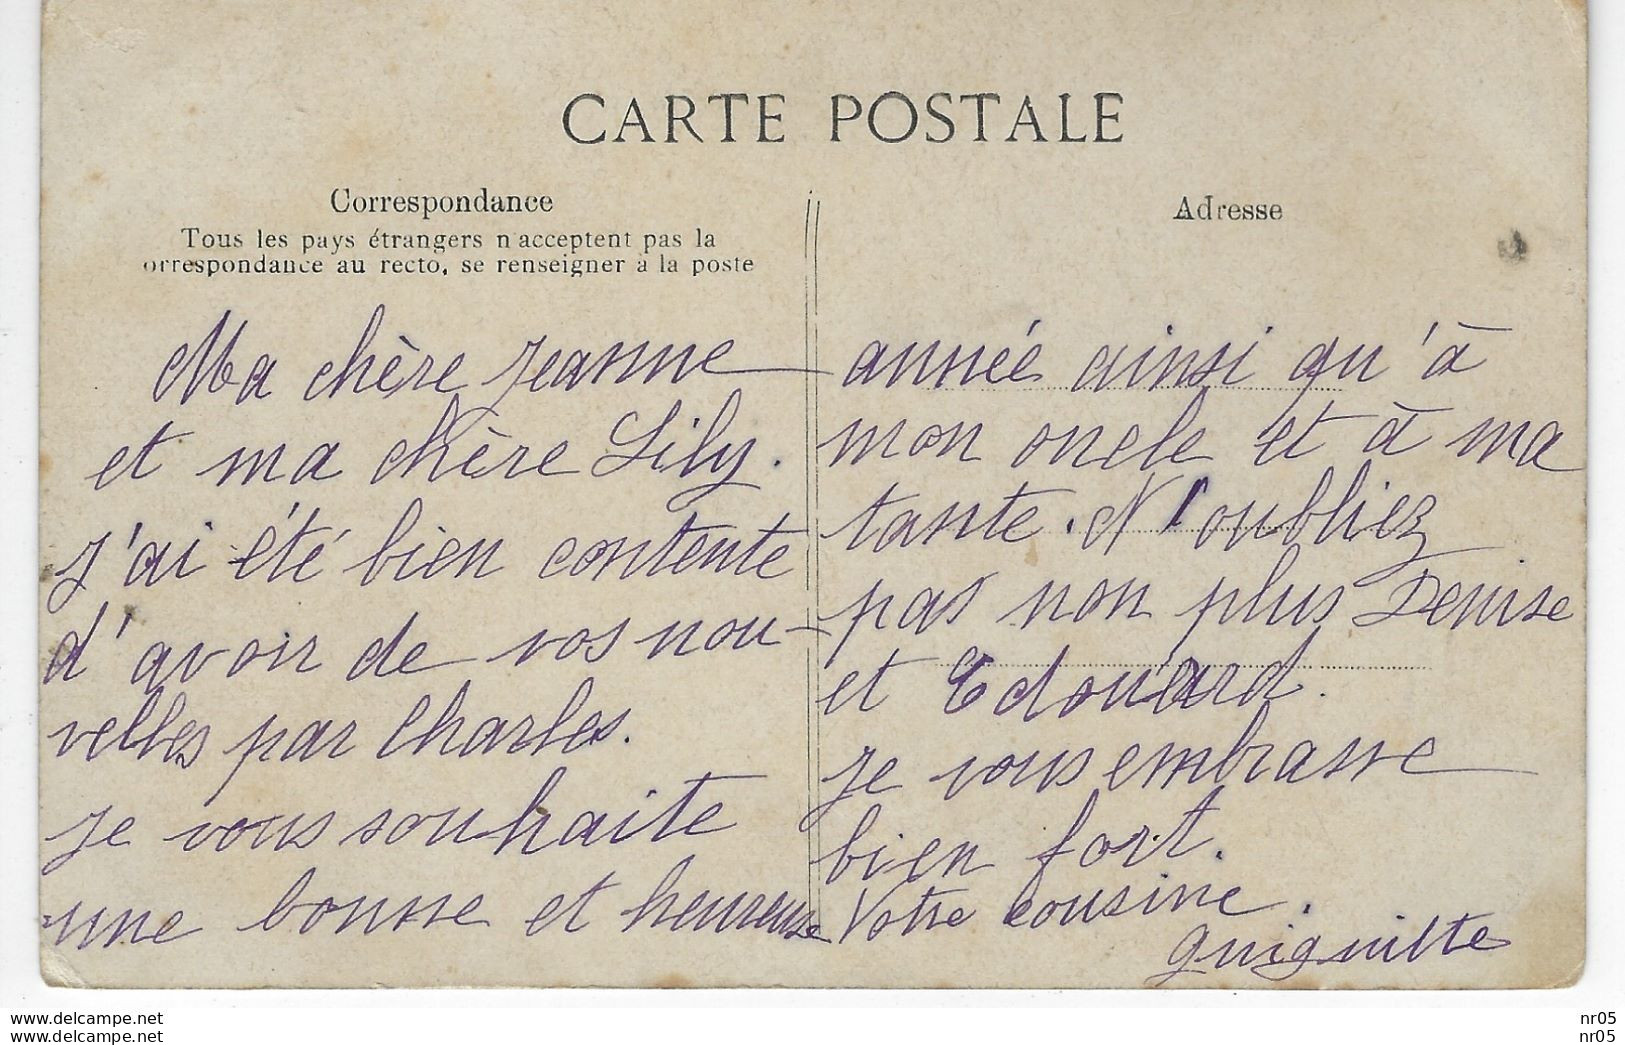 CARTE POSTALE
Correspondance
Tous les pays étrangers n'acceptent pas la
orrespondance au recto, se renseigner à la poste
Ma chère Jeanne
et ma chère Lily.
J'ai été bien contente
d'avoir de vos nou-
velles par Charles.
Je vous souhaite
une bonne et heureuse
Adresse
année ainsi qu'à
mon oncle et à ma
tante. N'oubliez
pas non plus Denise
et Edouard.
Je vous embrasse
bien fort.
Votre cousine.
www.delcampe.net
www.delcampe.net
nr05
nr05